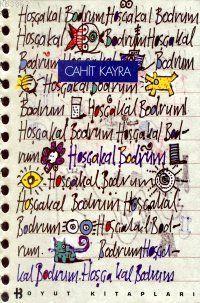 Hoşçakal Bodrum Hoşçakal
Bodrum Hoşçakal Bodrum
Hoşçakal
CAHİT KAYRA
Bodrum Hoşçakal
Bodrum Hoşçakal Bodrum
Hoşçakal Bodrum Hoşçakal
Bodrum Hoşçakal Bod-
rum Hoşçakal Bodrum
Hoşçakal Bodrum
Hoşçakal
Bodrum Hoşçakal
Bodrum. Hoşçakal Bod-
rum. Bodrum Hoşça-
kal Bodrum. Hoşça kal Bodrum
BOYUT KİTAPLARI